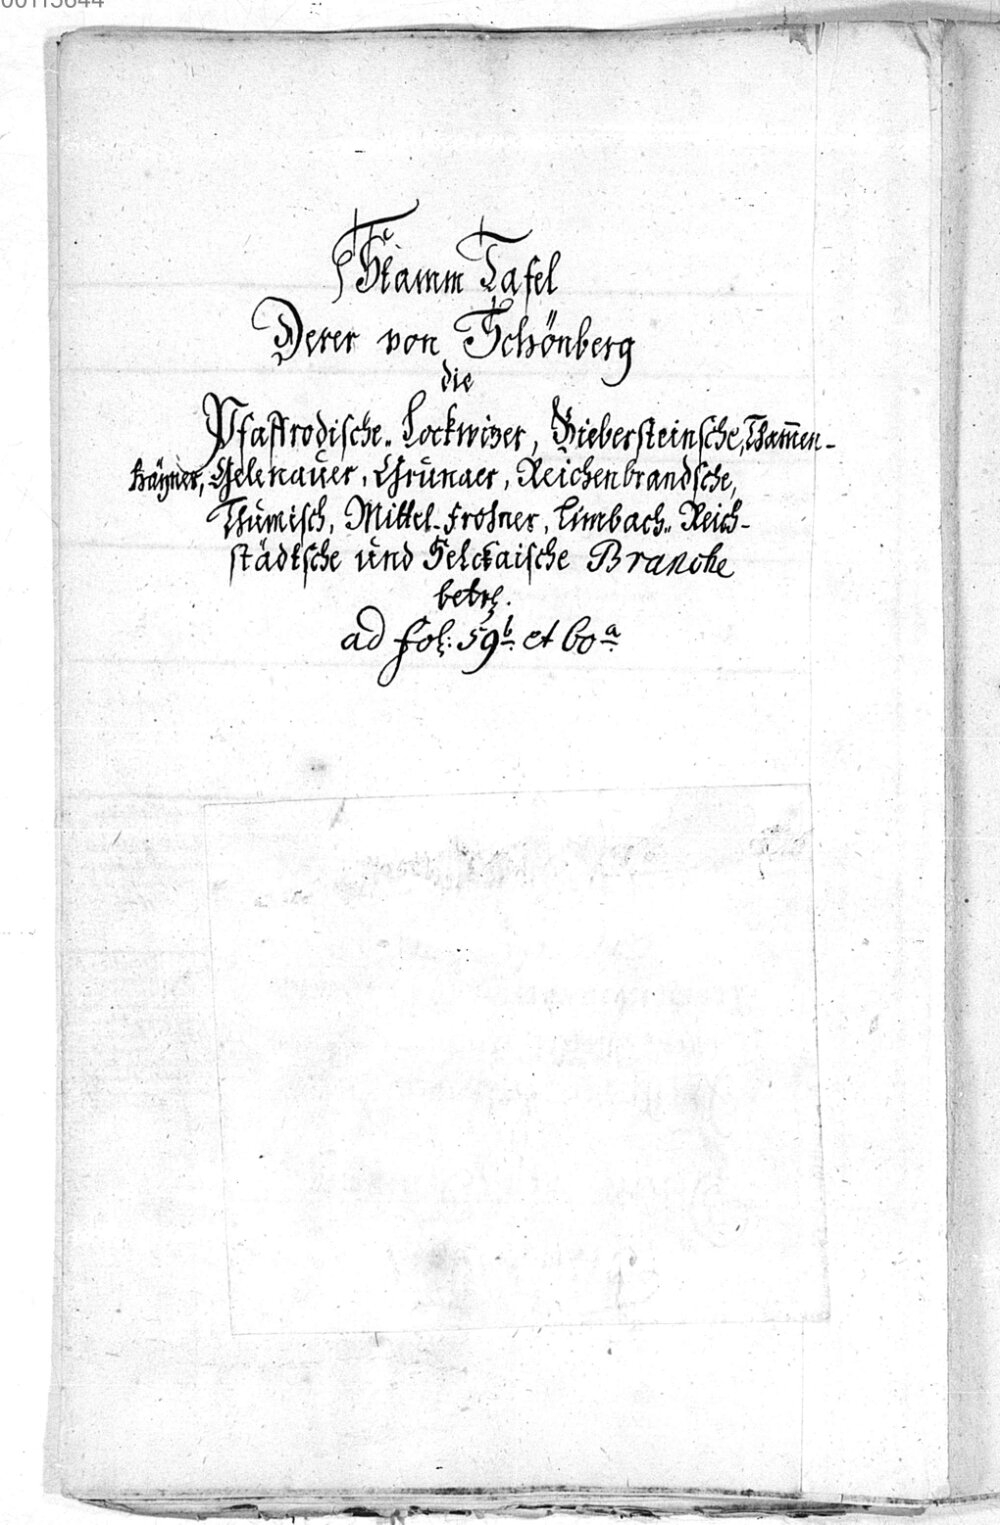 00113644
Stamm Tafel
Derer von Schönberg
die
Pfaffrodische, Lockwizer, Biebersteinsche, Tham̅en-
häyner, Gelenauer, Grunaer, Reichenbrandsche,
Thumisch, Mittel-Frohner, Limbach- Reich-
städtsche und Selckaische Branche
betr.
ad fol: 59b et 60a